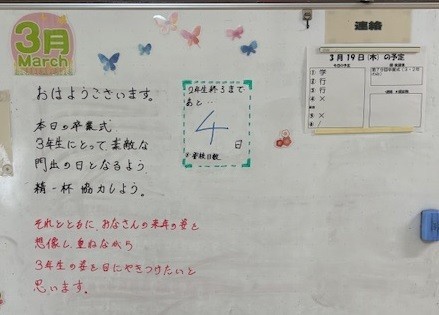 3月
March
おはようございます。
本日の卒業式
3年生にとって素敵な
門出の日となるよう
精一杯 協力しよう。
それとともに、みなさんの来年の姿を
想像し、重ねながら
3年生の姿を目にやきつけたいと
思います。
2年生終了まで
あと…
4
日
※登校日数
連絡
3月19日(木)の予定
1 学
2 行
3 行
4 ×
5 ×